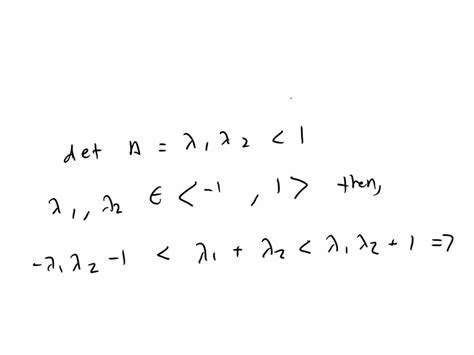 det A = λ₁ λ₂ < 1
λ₁, λ₂ ∈ <-1, 1> then,
-λ₁ λ₂ -1 < λ₁ + λ₂ < λ₁ λ₂ + 1 =>